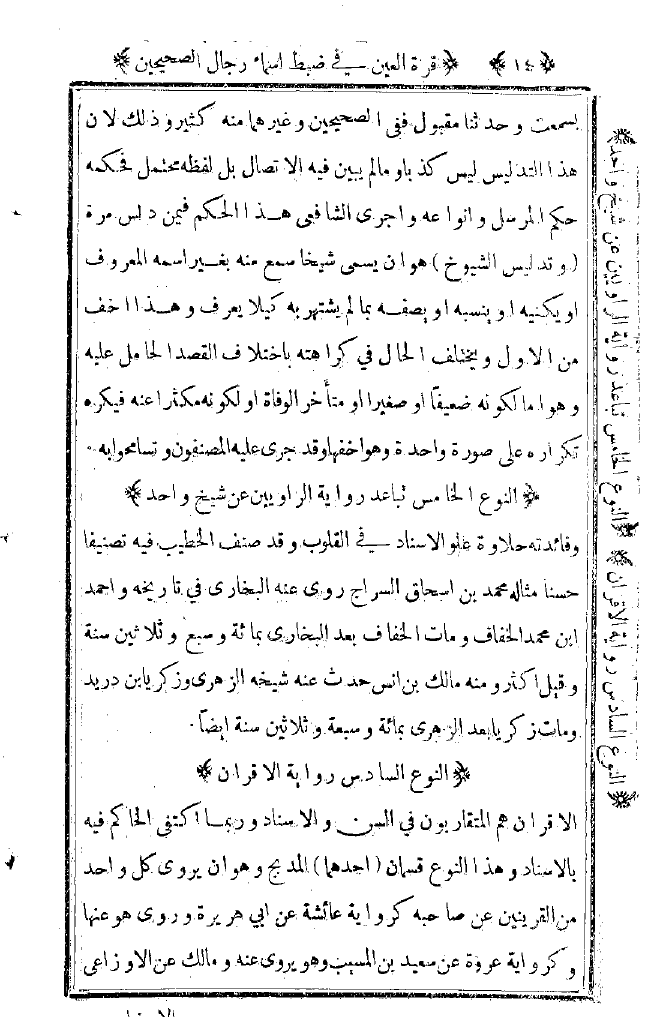 ﴿ ١٤ ﴾ ﴿ قرة العين في ضبط اسماء رجال الصحيحين ﴾
بسمعت وحدثنا مقبول ففى الصحيحين وغيرهما منه كثير وذلك لان
هذا التدليس ليس كذبا ومالم يبين فيه الاتصال بل لفظه محتمل فحكمه
حكم المرسل وانواعه واجرى الشافعى هذا الحكم فيمن دلس مرة
(وتدليس الشيوخ) هو ان يسمى شيخا سمع منه بغير اسمه المعروف
او يكنيه او ينسبه او يصفه بما لم يشتهر به كيلا يعرف وهذا اخف
من الاول ويختلف الحال في كراهته باختلاف القصد الحامل عليه
وهو اما لكونه ضعيفاً او صغيرا او متأخر الوفاة او لكونه مكثرا عنه فيكره
تكراره على صورة واحدة وهو اخفها وقد جرى عليه المصنفون وتسامحوا به ·
﴿ النوع الخامس تباعد رواية الراويين عن شيخ واحد ﴾
وفائدته حلاوة علو الاسناد في القلوب وقد صنف الخطيب فيه تصنيفا
حسنا مثاله محمد بن اسحاق السراج روى عنه البخارى في تاريخه واحمد
ابن محمد الخفاف ومات الخفاف بعد البخارى بمائة وسبع وثلاثين سنة
وقيل اكثر ومنه مالك بن انس حدث عنه شيخه الزهرى وزكريا بن دريد
ومات زكريا بعد الزهرى بمائة وسبعة وثلاثين سنة ايضاً ·
﴿ النوع السادس رواية الاقران ﴾
الاقران هم المتقاربون في السن والاسناد وربما اكتفى الحاكم فيه
بالاسناد وهذا النوع قسمان (احدهما) المدبج وهو ان يروى كل واحد
من القرينين عن صاحبه كرواية عائشة عن ابي هريرة وروى هو عنها
وكرواية عروة عن سعيد بن المسيب وهو يروى عنه ومالك عن الاوزاعى
﴿ النوع الخامس تباعد رواية الراويين عن شيخ واحد ﴾
﴿ النوع السادس رواية الاقران ﴾